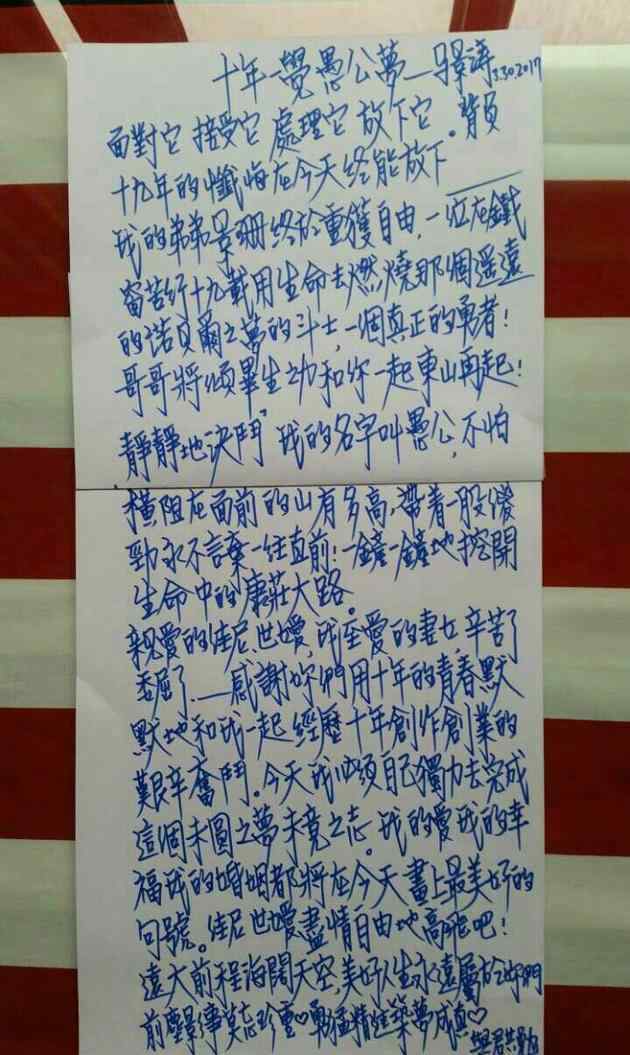 十年一覺愚公夢—馬景濤 3.30.2017
面對它 接受它 處理它 放下它。背負
十九年的懺悔在今天終能放下——
我的弟弟景珊終於重獲自由，一位在鐵
窗苦行十九載用生命去燃燒那個遥遠
的諾貝爾之夢的斗士，一個真正的勇者！
哥哥將傾畢生之力和你一起東山再起！
靜靜地決鬥，我的名字叫愚公，不怕
橫阻在面前的山有多高，帶着一股傻
勁永不言棄一往直前！一鏟一鏟地挖開
生命中的康莊大路。
親愛的佳尼、世嬡，我至愛的妻女，辛苦了
委屈了——感謝妳們用十年的青春默
默地和我一起經歷十年創作創業的
艱辛奮鬥。今天我必須自己獨力去完成
這個未圓之夢未竟之志。我的愛我的幸
福我的婚姻都將在今天畫上最美好的
句號。佳尼 世嬡盡情自由地高飛吧！
遠大前程海闊天空，美好人生永遠屬於妳們
前塵影事莫忘珍重♡勇猛精進築夢成真♡
與君共勉